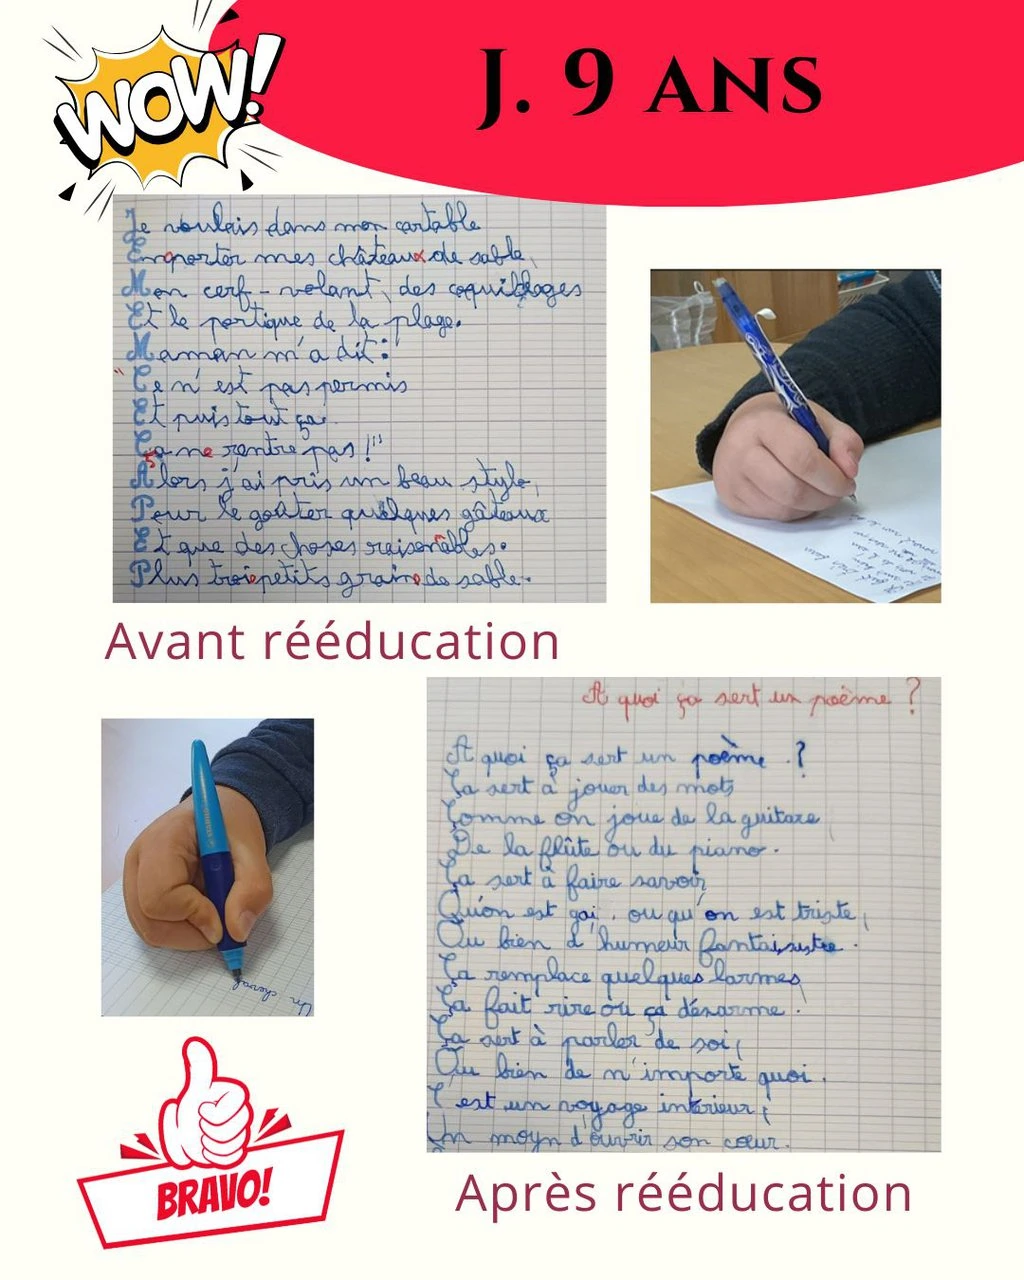 WOW!
J. 9 ANS
Je voulais dans mon cartable
Emporter mes châteaux de sable,
Mon cerf-volant, des coquillages
Et le portique de la plage.
Maman m'a dit :
" Ce n'est pas permis
Et puis tout ça
Ça ne rentre pas ! "
Alors j'ai pris un beau stylo,
Pour le goûter quelques gâteaux
Et que des choses raisonables.
Plus trois petits grains de sable.
Avant rééducation
A quoi ça sert un poème ?
A quoi ça sert un poème ?
Ça sert à jouer des mots
Comme on joue de la guitare
De la flûte ou du piano.
Ça sert à faire savoir
Qu'on est gai, ou qu'on est triste,
Ou bien d'humeur fantaisiste.
Ça remplace quelques larmes,
Ça fait rire ou ça désarme.
Ça sert à parler de soi,
Ou bien de n'importe quoi.
C'est un voyage intérieur,
Un moyn d'ouvrir son cœur.
Un cheval
BRAVO!
Après rééducation